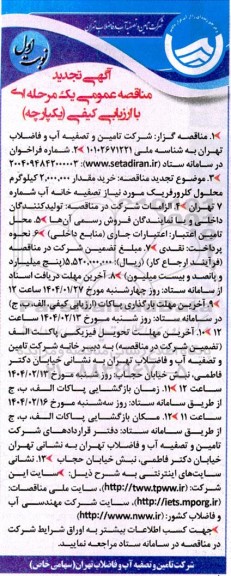 شرکت تامین و تصفیه آب و فاضلاب تهران
نوبت اول
آگهی تجدید
مناقصه عمومی یک مرحله ای
با ارزیابی کیفی (یکپارچه)
۱. مناقصه گزار: شرکت تامین و تصفیه آب و فاضلاب
تهران به شناسه ملی ۱۰۱۰۲۶۷۱۲۲۱ ۲. شماره فراخوان
در سامانه ستاد (www.setadiran.ir): ۲۰۰۴۰۹۴۸۴۲۰۰۰۰۰۳
۳. موضوع تجدید مناقصه: خرید مقدار ۳,۰۰۰,۰۰۰ کیلوگرم
محلول کلروفریک مورد نیاز تصفیه خانه آب شماره
۷ تهران ۴. الزامات شرکت در مناقصه: تولیدکنندگان
داخلی و یا نمایندگان فروش رسمی آن‌ها ۵. محل
تامین اعتبار: اعتبارات جاری (منابع داخلی) ۶. نحوه
پرداخت: نقدی ۷. مبلغ تضمین شرکت در مناقصه
(فرآیند ارجاع کار) (ریال): ۵,۵۲۰,۰۰۰,۰۰۰ (پنج میلیارد
و پانصد و بیست میلیون) ۸. آخرین مهلت دریافت اسناد
از سامانه ستاد: روز چهارشنبه مورخ ۱۴۰۴/۰۱/۲۷ ساعت ۱۲
۹. آخرین مهلت بارگذاری پاکات (ارزیابی کیفی، الف، ب، ج)
در سامانه ستاد: روز شنبه مورخ ۱۴۰۴/۰۲/۱۳ ساعت
۱۲ ۱۰. آخرین مهلت تحویل فیزیکی پاکت الف
(تضمین شرکت در مناقصه) به دبیرخانه شرکت تامین
و تصفیه آب و فاضلاب تهران به نشانی خیابان دکتر
فاطمی، نبش خیابان حجاب: روز شنبه مورخ ۱۴۰۴/۰۲/۱۳
ساعت ۱۲ ۱۱. زمان بازگشایی پاکات الف، ب، ج
از طریق سامانه ستاد: روز سه‌شنبه مورخ ۱۴۰۴/۰۲/۱۶
ساعت ۱۱ ۱۲. مکان بازگشایی پاکات الف، ب، ج
از طریق سامانه ستاد: دفتر قراردادهای شرکت
تامین و تصفیه آب و فاضلاب تهران به نشانی تهران
خیابان دکتر فاطمی، نبش خیابان حجاب ۱۳. نشانی
سایت‌های اینترنتی به شرح ذیل: سایت این
شرکت: (http://www.tpww.ir)، سایت ملی مناقصات:
(http://iets.mporg.ir)، سایت شرکت مهندسی آب
و فاضلاب کشور: (http://www.nww.ir)
جهت کسب اطلاعات بیشتر به اوراق شرایط شرکت
در مناقصه در سامانه ستاد مراجعه نمایید.
شرکت تامین و تصفیه آب و فاضلاب تهران (سهامی خاص)